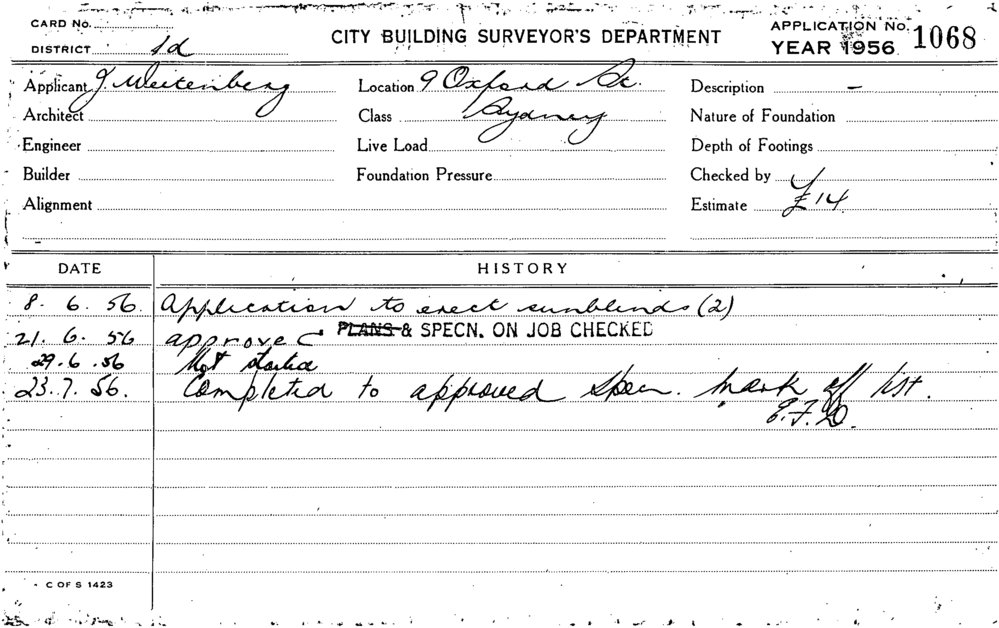 CARD No.
DISTRICT 1d
CITY BUILDING SURVEYOR'S DEPARTMENT
APPLICATION No. 1068
YEAR 1956
Applicant J. Weitenberg
Location 9 Oxford St.
Description -
Architect
Class Sydney
Nature of Foundation
Engineer
Live Load
Depth of Footings
Builder
Foundation Pressure
Checked by
Alignment
Estimate £14
DATE HISTORY
8. 6. 56. Application to erect sunblinds (2)
21. 6. 56 approved PLANS & SPECN. ON JOB CHECKED
29. 6. 56 Not started
23. 7. 56. Completed to approved specn. Mark off list.
C OF S 1423